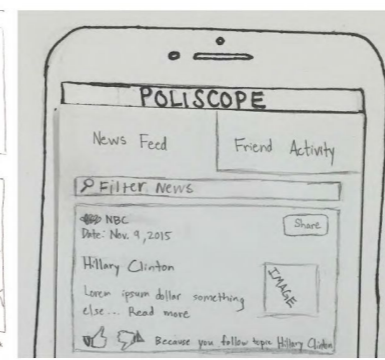 POLISCOPE
News Feed
Friend Activity
Filter News
NBC
Date: Nov. 9, 2015
Share
Hillary Clinton
Lorem ipsum dollar something
else... Read more
IMAGE
Because you follow topic Hillary Clinton